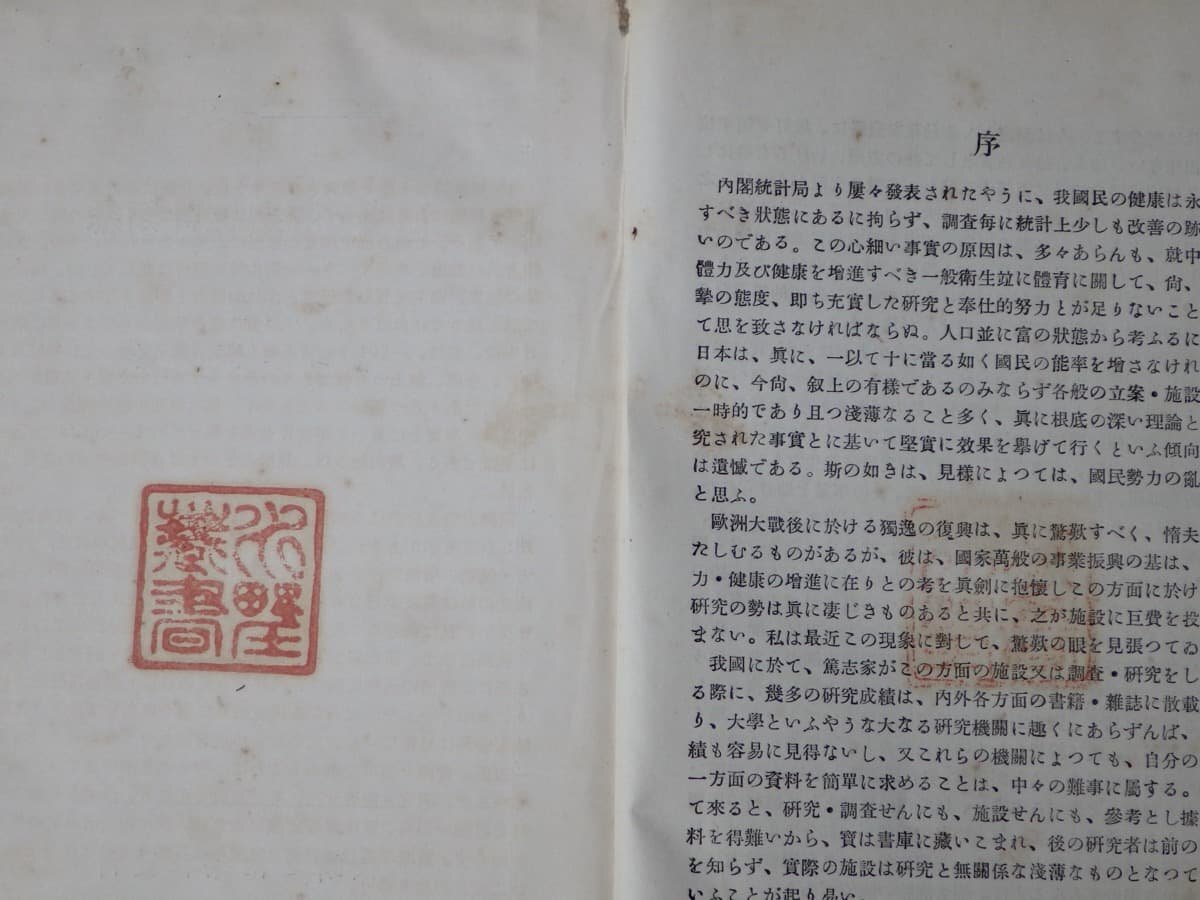 序
內閣統計局より屢々發表されたやうに、我國民の健康は永
すべき狀態にあるに拘らず、調査每に統計上少しも改善の跡
いのである。この心細い事實の原因は、多々あらんも、就中
體力及び健康を增進すべき一般衛生竝に體育に關して、尙、
摯の態度、卽ち充實した硏究と奉仕的努力とが足りないこと
て思を致さなければならぬ。人口並に富の狀態から考ふるに
日本は、眞に、一以て十に當る如く國民の能率を增さなけれ
のに、今尙、叙上の有樣であるのみならず各般の立案・施設
一時的であり且つ淺薄なること多く、眞に根底の深い理論と
究された事實とに基いて堅實に效果を擧げて行くといふ傾向
は遺憾である。斯の如きは、見樣によつては、國民勢力の亂
と思ふ。
歐洲大戰後に於ける獨逸の復興は、眞に驚歎すべく、惰夫
たしむるものがあるが、彼は、國家萬般の事業振興の基は、
力・健康の增進に在りとの考を眞劍に抱懷しこの方面に於け
硏究の勢は眞に凄じきものあると共に、之が施設に巨費を投
まない。私は最近この現象に對して、驚歎の眼を見張つてゐ
我國に於て、篤志家がこの方面の施設又は調査・硏究をし
る際に、幾多の硏究成績は、內外各方面の書籍・雜誌に散載
り、大學といふやうな大なる硏究機關に趣くにあらずんば、
績も容易に見得ないし、又これらの機關によつても、自分の
一方面の資料を簡單に求めることは、中々の難事に屬する。
て來ると、硏究・調査せんにも、施設せんにも、參考とし據
料を得難いから、寶は書庫に藏いこまれ、後の硏究者は前の
を知らず、實際の施設は硏究と無關係な淺薄なものとなつて
いふことが起り易い。